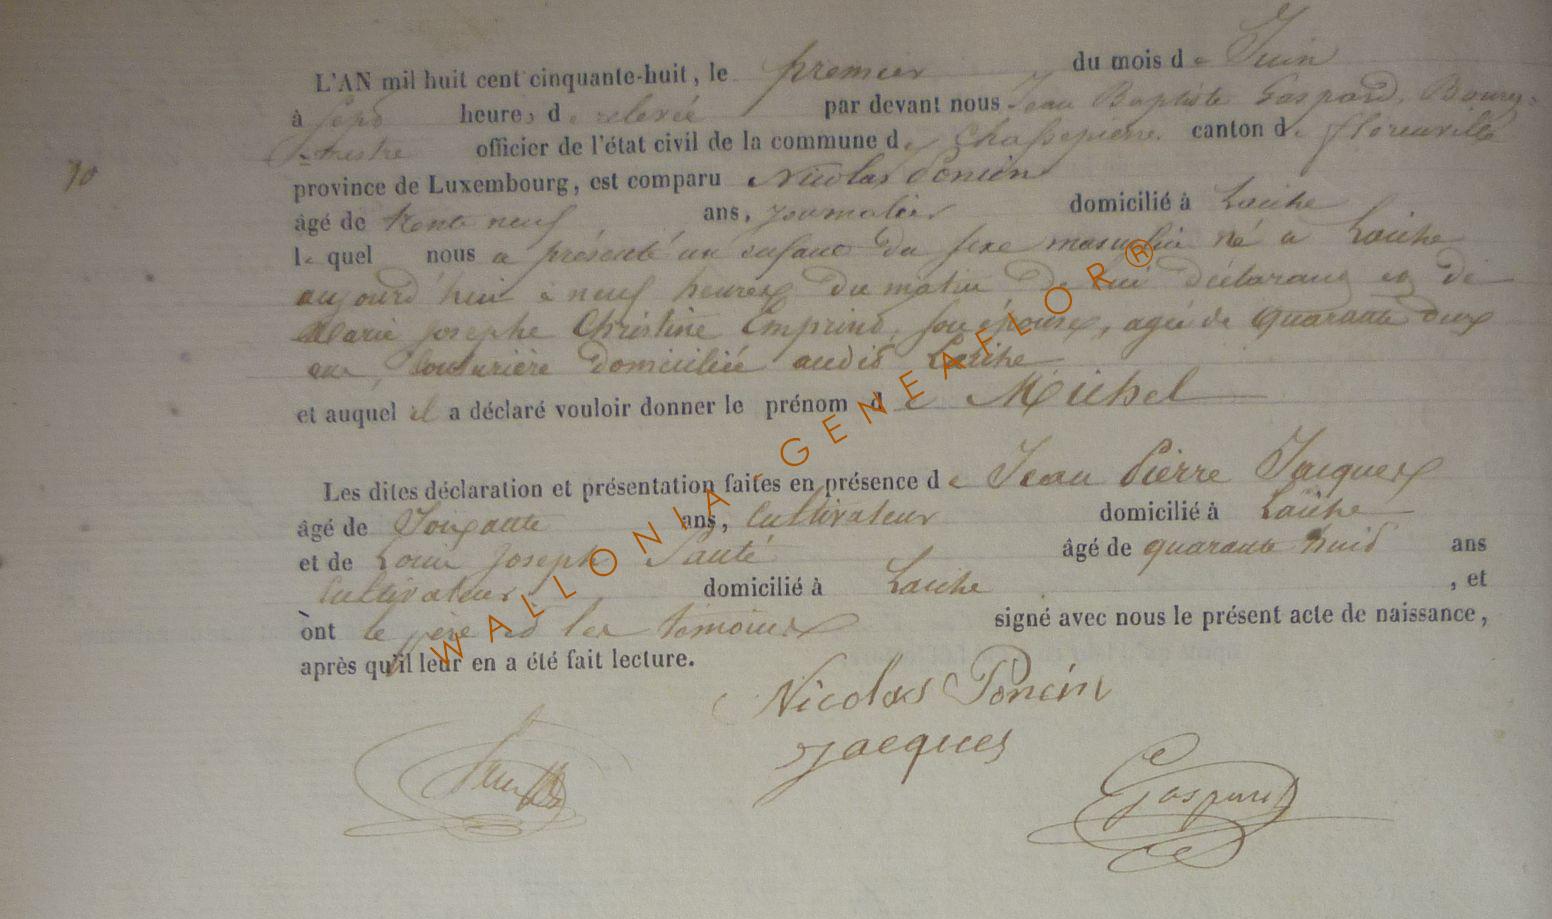 L'AN mil huit cent cinquante-huit, le premier du mois de Juin
à sept heures de relevée par devant nous Jean Baptiste Gaspard, Bourg-
mestre officier de l'état civil de la commune de Chassepierre canton de Florenville
70
province de Luxembourg, est comparu Nicolas Poncin
âgé de trente neuf ans, journalier domicilié à Laiche
lequel nous a présenté un enfant du sexe masculin né à Laiche
aujourd'hui à neuf heures du matin de lui déclarant et de
Marie Josephe Christine Emprind, son épouse, agée de quarante deux
ans, couturière domiciliée audit Laiche
et auquel il a déclaré vouloir donner le prénom de Michel
Les dites déclaration et présentation faites en présence de Jean Pierre Jacques
âgé de soixante ans, cultivateur domicilié à Laiche
et de Louis Joseph Santé âgé de quarante huit ans
cultivateur domicilié à Laiche , et
ònt le père et les témoins signé avec nous le présent acte de naissance,
après qu'il leur en a été fait lecture.
Nicolas Poncin
Jacques
Gaspard
WALLONIA - GENEAFLOR®